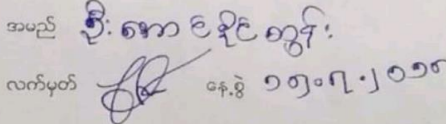 အမည် ဦးအောင်ခိုင်ထွန်း
လက်မှတ် နေ့စွဲ ၁၅.၇.၂၀၁၈